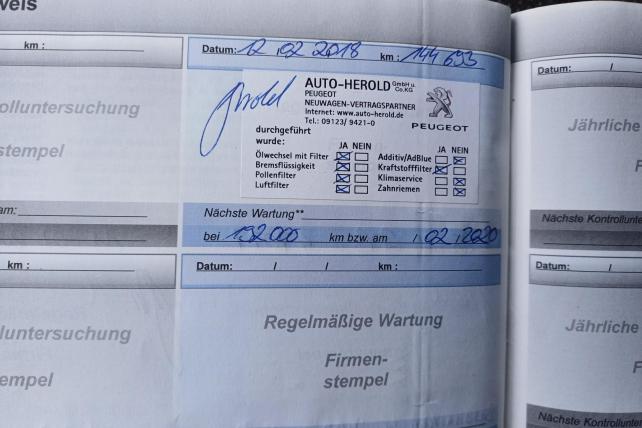 weis
km :
olluntersuchung
stempel
am:
km :
luntersuchung
empel
Datum: 12.02 2018 km: 144 693
AUTO-HEROLD GmbH u. Co.KG
PEUGEOT
NEUWAGEN-VERTRAGSPARTNER
Internet: www.auto-herold.de
Tel.: 09123/ 9421-0
PEUGEOT
durchgeführt
wurde: JA NEIN JA NEIN
Ölwechsel mit Filter Additiv/AdBlue
Bremsflüssigkeit Kraftstofffilter
Pollenfilter Klimaservice
Luftfilter Zahnriemen
Nächste Wartung**
bei 192 000 km bzw. am / 02.2020
Datum: / / km :
Regelmäßige Wartung
Firmen-
stempel
Datum: /
Jährliche
F
Nächste Kontrollunte
Datum: /
Jährliche
F
Nächste Kontrollunte